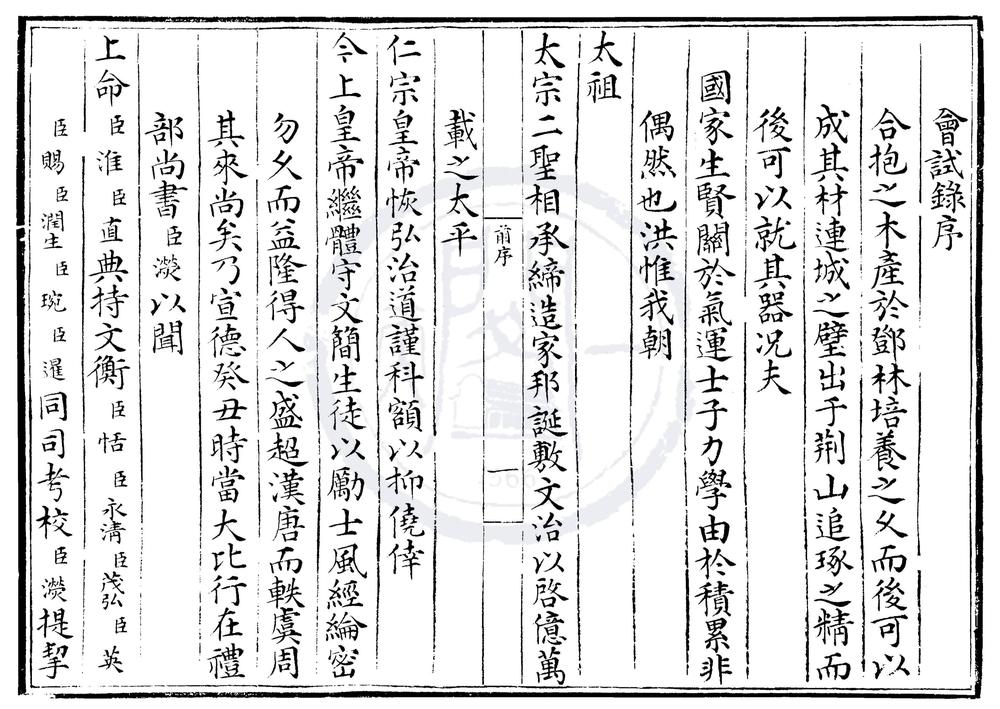 會試錄序
合抱之木產於鄧林培養之久而後可以
成其材連城之璧出于荆山追琢之精而
後可以就其器况夫
國家生賢關於氣運士子力學由於積累非
偶然也洪惟我朝
太祖
太宗二聖相承締造家邦誕敷文治以啓億萬
前序
一
載之太平
仁宗皇帝恢弘治道謹科額以抑僥倖
今上皇帝繼體守文簡生徒以勵士風經綸密
勿久而益隆得人之盛超漢唐而軼虞周
其來尚矣乃宣德癸丑時當大比行在禮
部尚書臣濙以聞
上命臣淮臣直典持文衡臣恬臣永清臣茂弘臣英
臣賜臣潤生臣琬臣暹同司考校臣濙提挈